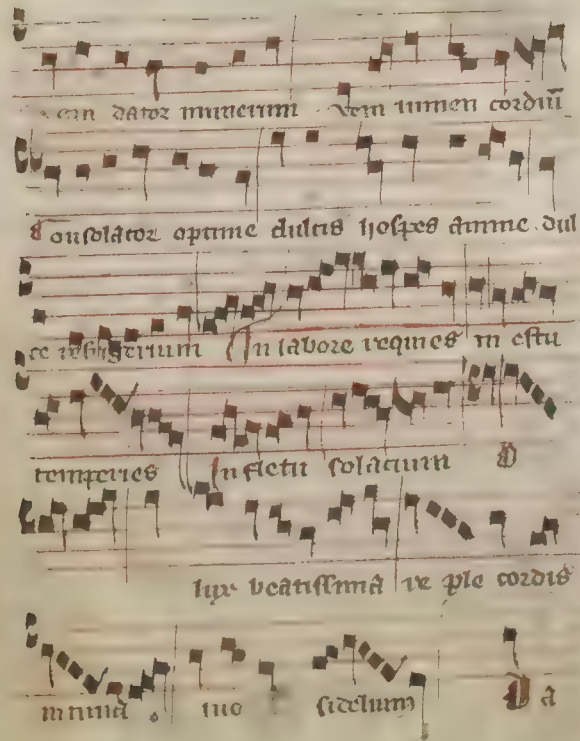 veni dator munerum veni lumen cordiū
Consolator optime dulcis hospes anime dul
ce refrigerium In labore requies in estu
temperies In fletu solacium O
lux beatissima re ple cordis
intima tuo fidelium Da